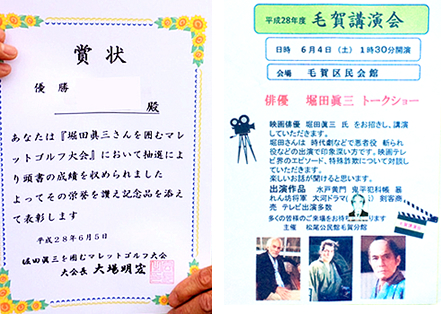 賞状
優勝
殿
あなたは『堀田眞三さんを囲むマレ
ットゴルフ大会』において抽選によ
り頭書の成績を収められました
よってその栄誉を讃え記念品を添え
て表彰します
平成28年6月5日
堀田眞三を囲むマレットゴルフ大会
大会長 大場明宏
平成28年度 毛賀講演会
日時 6月4日(土)1時30分開演
会場 毛賀区民会館
俳優 堀田眞三 トークショー
映画俳優 堀田眞三 氏 をお招きし、講演
していただきます。
堀田さんは 時代劇などで悪者役 斬られ
役などの出演で印象深い方です。映画テレ
ビ界のエピソード、特殊詐欺について対談し
ていただきます。
楽しいお話が聞けると思います。
出演作品 水戸黄門 鬼平犯科帳 暴
れん坊将軍 大河ドラマ( )剣客商
売 テレビ出演多数
多くの皆様のご来場をお待 ります
主催 松尾公民館毛賀分館